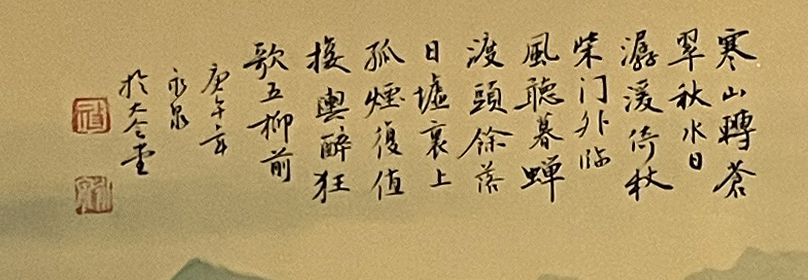 寒山轉蒼
翠秋水日
潺湲倚杖
柴门外临
風聽暮蟬
渡頭餘落
日墟裏上
孤煙復值
接輿醉狂
歌五柳前
庚午年
永泉
於大